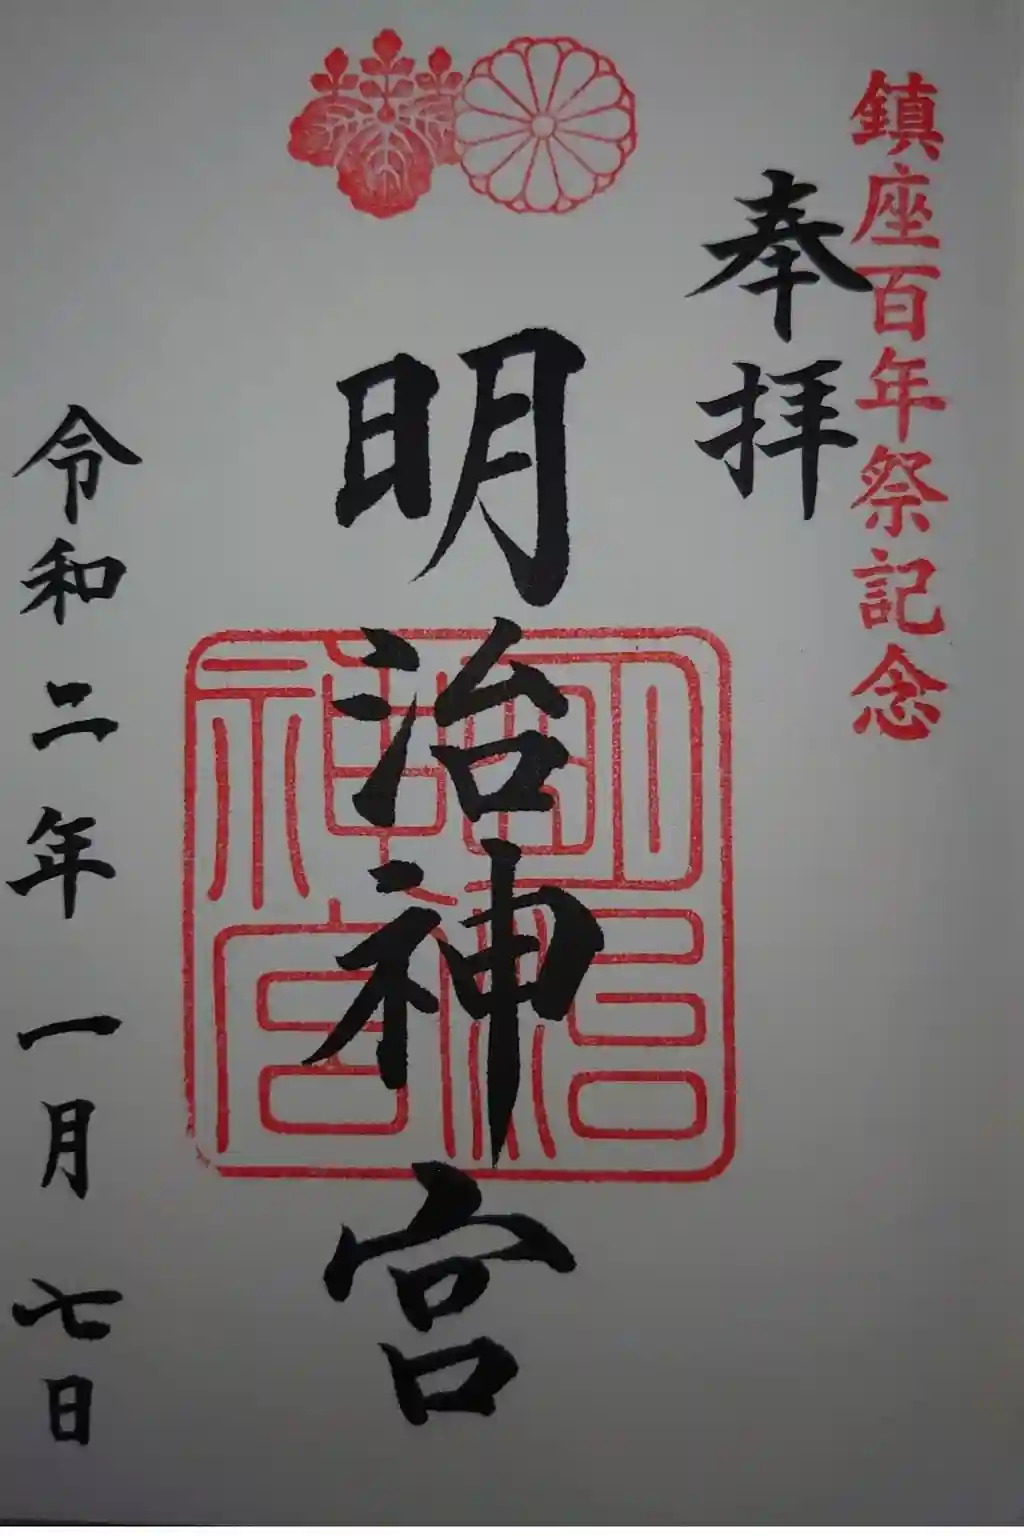 鎮座百年祭記念
奉拝
明治神宮
明治
神宮
令和二年一月七日